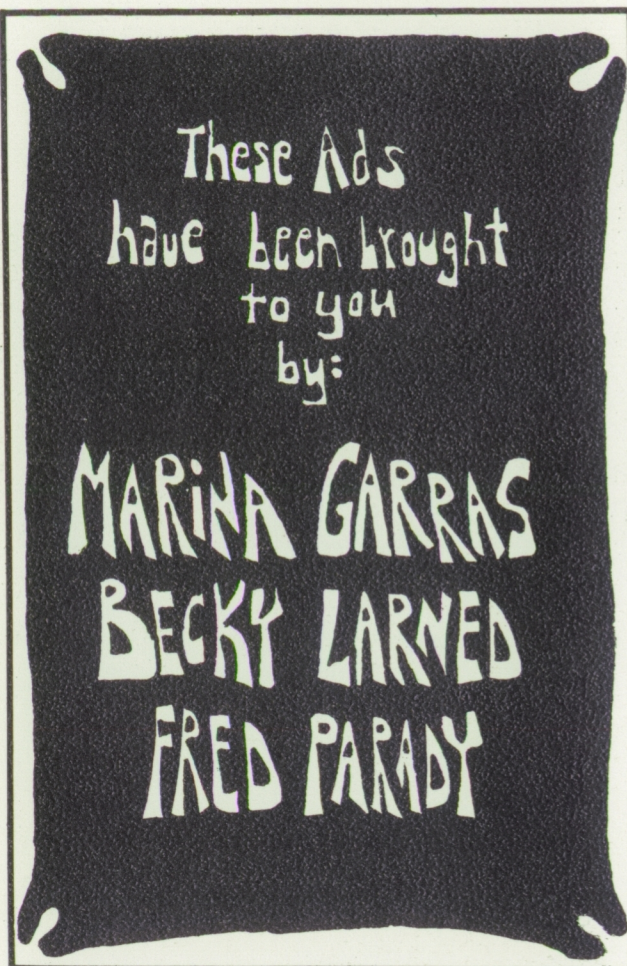 These Ads
have been brought
to you
by:
MARiNA GARRAS
BECKY LARNED
FRED PARADY